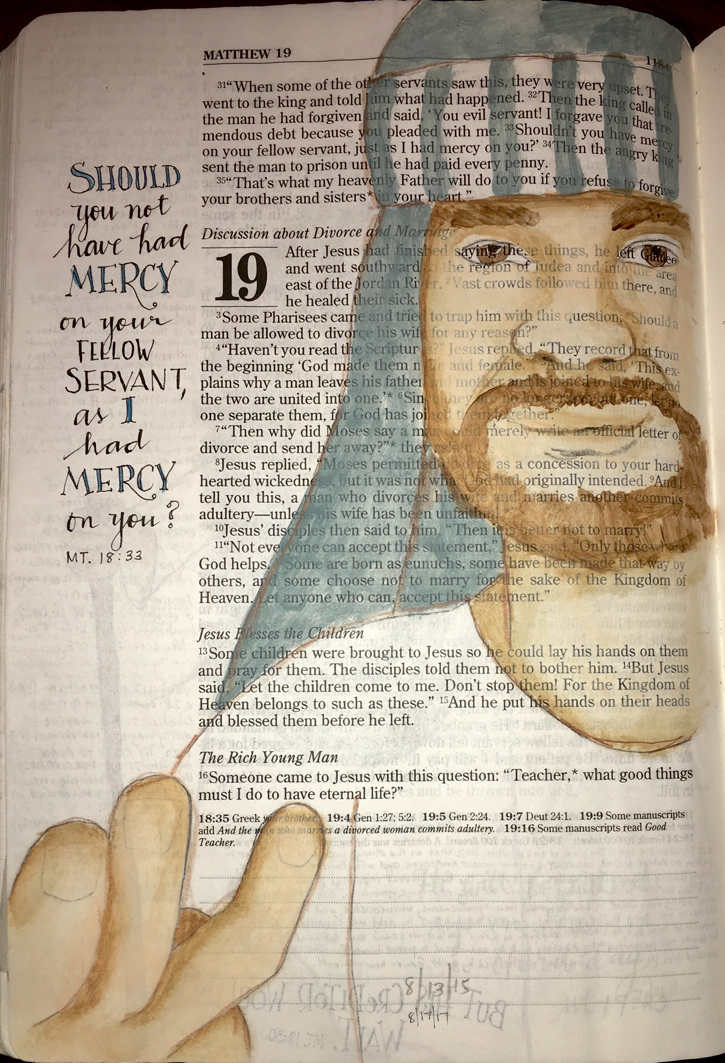 MATTHEW 19
SHOULD
you not
have had
MERCY
on your
FELLOW
SERVANT,
as I
had
MERCY
on you?
MT. 18:33
31“When some of the other servants saw this, they were very upset. They
went to the king and told him what had happened. 32Then the king called in
the man he had forgiven and said, ‘You evil servant! I forgave you that tre-
mendous debt because you pleaded with me. 33Shouldn’t you have mercy
on your fellow servant, just as I had mercy on you?’ 34Then the angry king
sent the man to prison until he had paid every penny.
35“That’s what my heavenly Father will do to you if you refuse to forgive
your brothers and sisters* in your heart.”
Discussion about Divorce and Marriage
19
After Jesus had finished saying these things, he left Galilee
and went southward to the region of Judea and into the area
east of the Jordan River. 2Vast crowds followed him there, and
he healed their sick.
3Some Pharisees came and tried to trap him with this question: “Should a
man be allowed to divorce his wife for any reason?”
4“Haven’t you read the Scriptures?” Jesus replied. “They record that from
the beginning ‘God made them male and female.’ 5And he said, ‘This ex-
plains why a man leaves his father and mother and is joined to his wife, and
the two are united into one.’* 6Since they are no longer two but one, let no
one separate them, for God has joined them together.”
7“Then why did Moses say a man could merely write an official letter of
divorce and send her away?”* they asked.
8Jesus replied, “Moses permitted divorce as a concession to your hard-
hearted wickedness, but it was not what God had originally intended. 9And I
tell you this, a man who divorces his wife and marries another commits
adultery—unless his wife has been unfaithful.”
10Jesus’ disciples then said to him, “Then it is better not to marry!”
11“Not everyone can accept this statement,” Jesus said. “Only those whom
God helps. Some are born as eunuchs, some have been made that way by
others, and some choose not to marry for the sake of the Kingdom of
Heaven. Let anyone who can, accept this statement.”
Jesus Blesses the Children
13Some children were brought to Jesus so he could lay his hands on them
and pray for them. The disciples told them not to bother him. 14But Jesus
said, “Let the children come to me. Don’t stop them! For the Kingdom of
Heaven belongs to such as these.” 15And he put his hands on their heads
and blessed them before he left.
The Rich Young Man
16Someone came to Jesus with this question: “Teacher,* what good things
must I do to have eternal life?”
18:35 Greek your brother. 19:4 Gen 1:27; 5:2. 19:5 Gen 2:24. 19:7 Deut 24:1. 19:9 Some manuscripts
add And the man who marries a divorced woman commits adultery. 19:16 Some manuscripts read Good
Teacher.
8/13/15
8/17/17